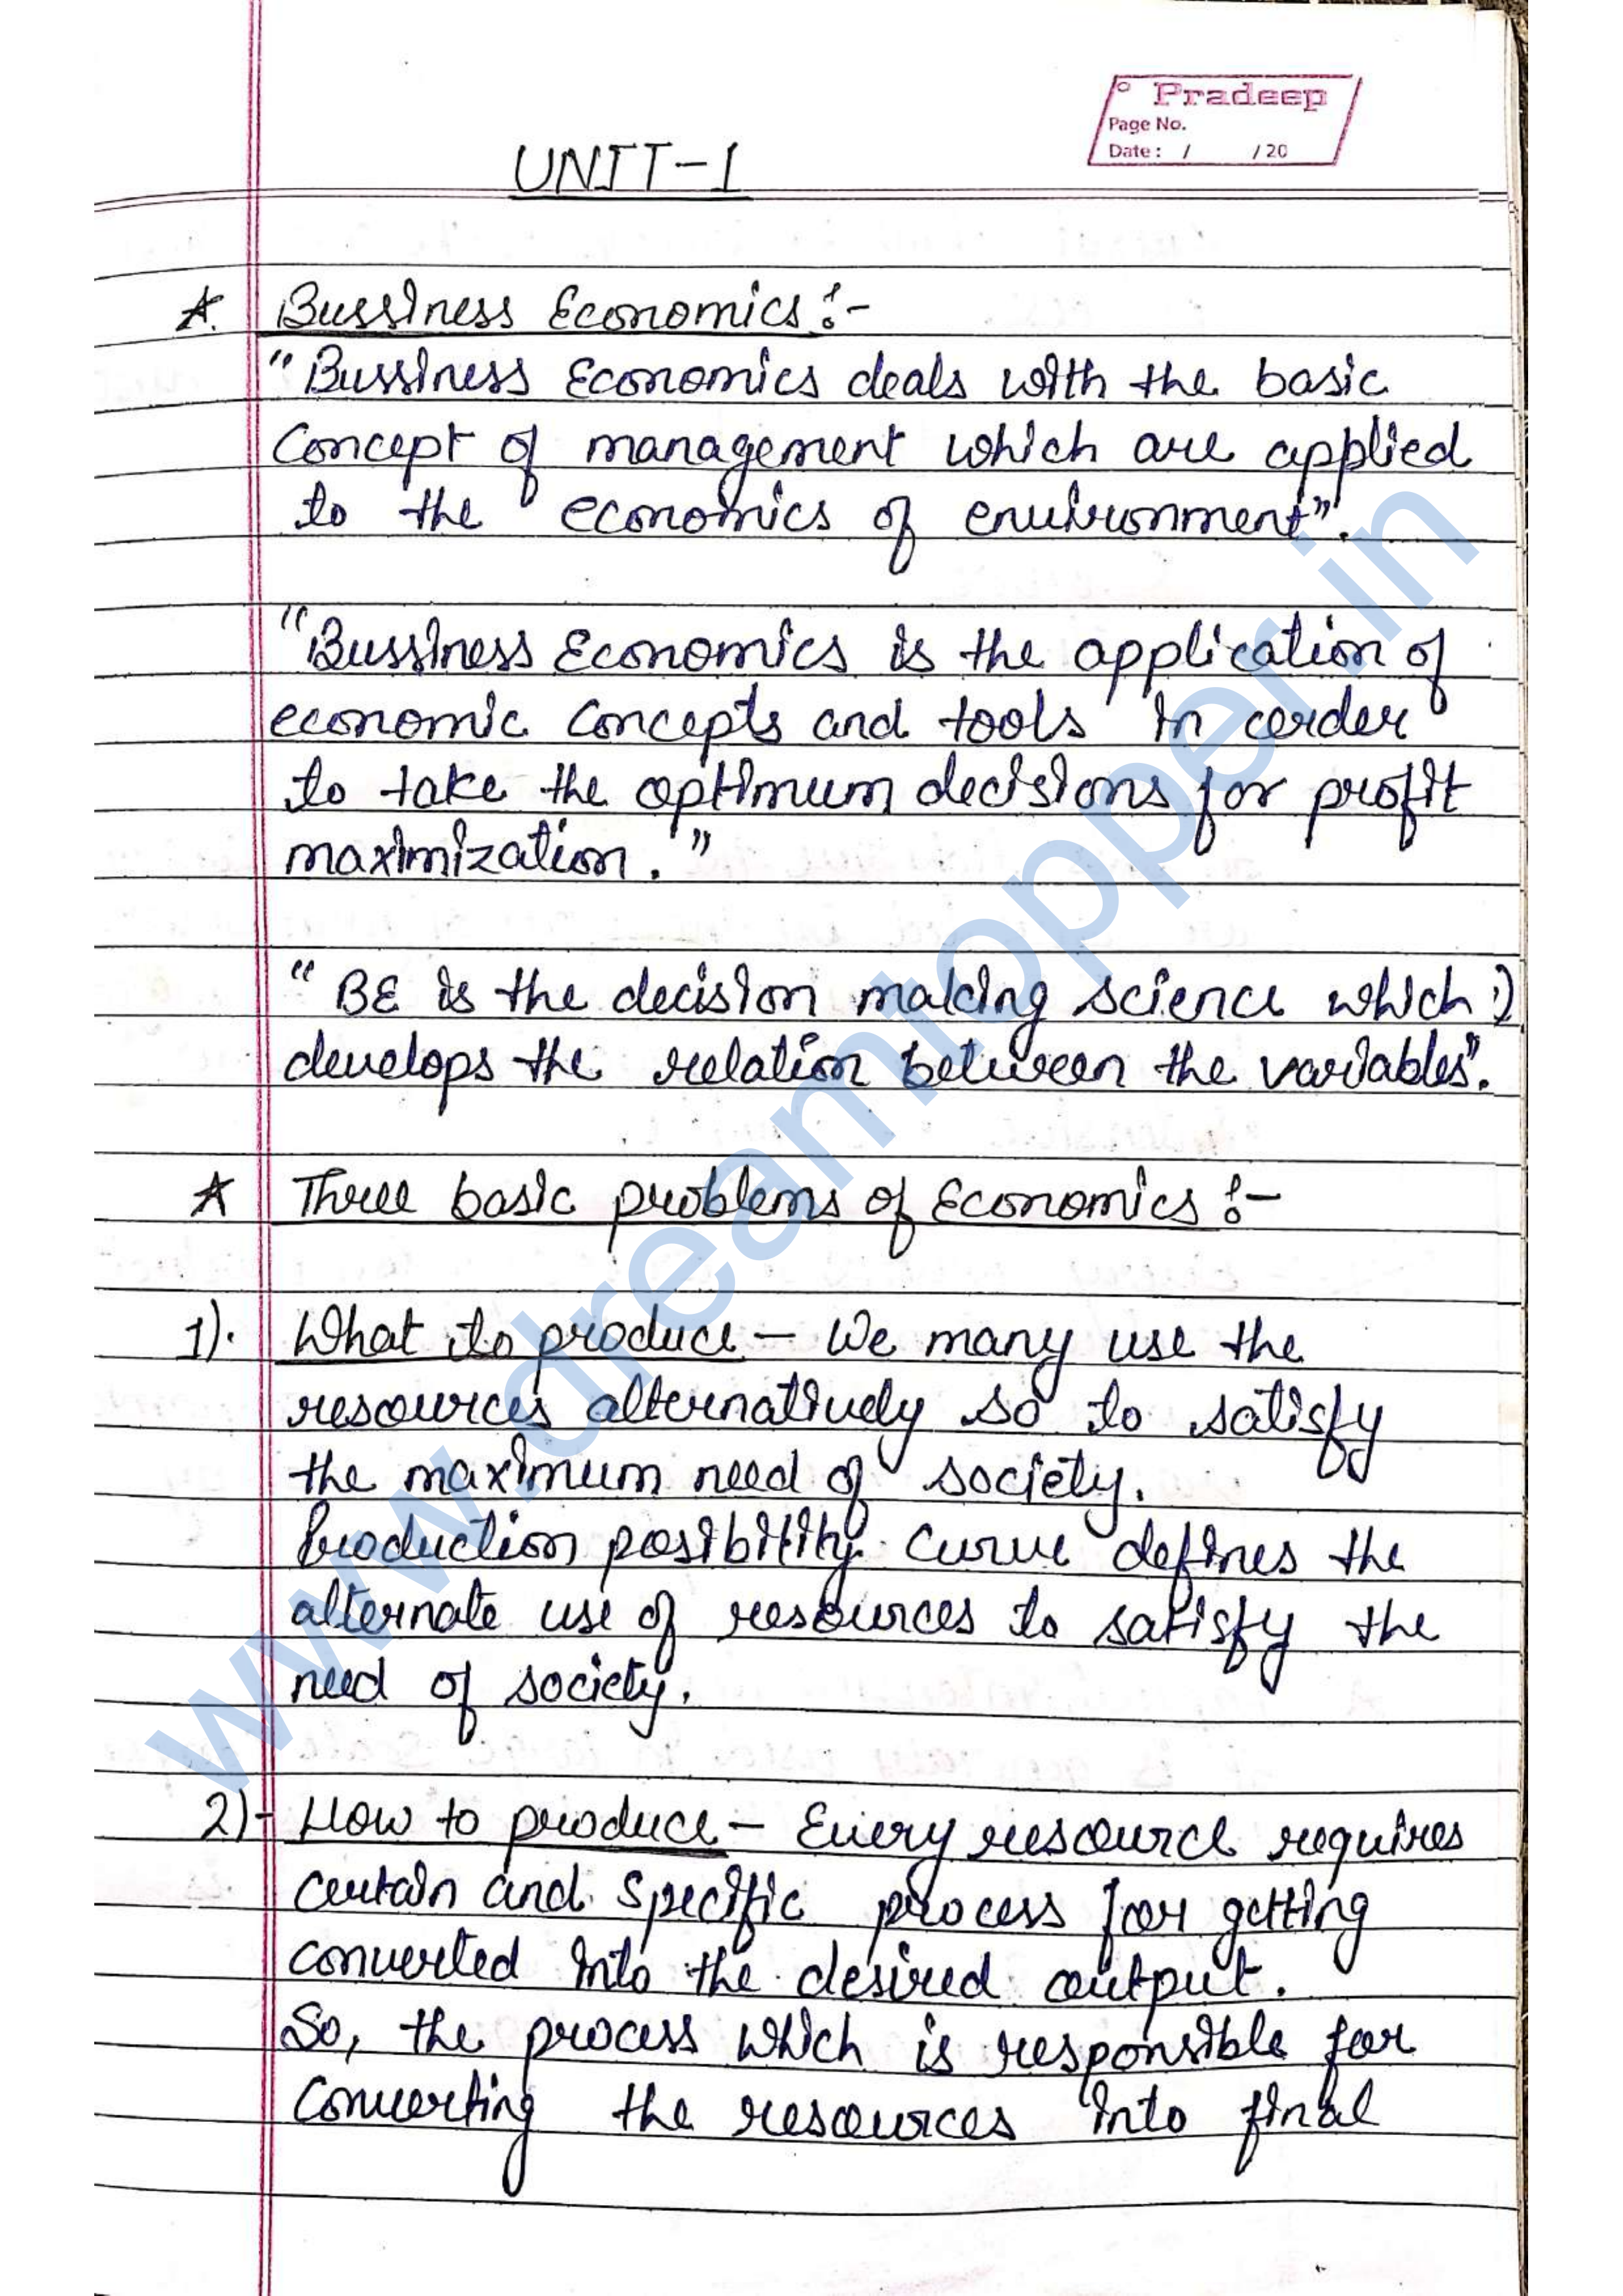 Pradeep
Page No.
Date : / / 20
UNIT-1
Bussiness Economics :-
"Bussiness Economics deals with the basic
Concept of management which are applied
to the economics of environment".
"Bussiness Economics is the application of
economic concepts and tools in order
to take the optimum decisions for profit
maximization."
"BE is the decision making science which
develops the relation between the variables".
Three basic problems of Economics :-
1). What to produce - We many use the
resources alternatively so to satisfy
the maximum need of society.
Production posibility curve defines the
alternate use of resources to satisfy the
need of society.
2)- How to produce - Every resource requires
certain and specific process for getting
converted into the desired output.
So, the process which is responsible for
Converting the resources into final
www.dreamtopper.in